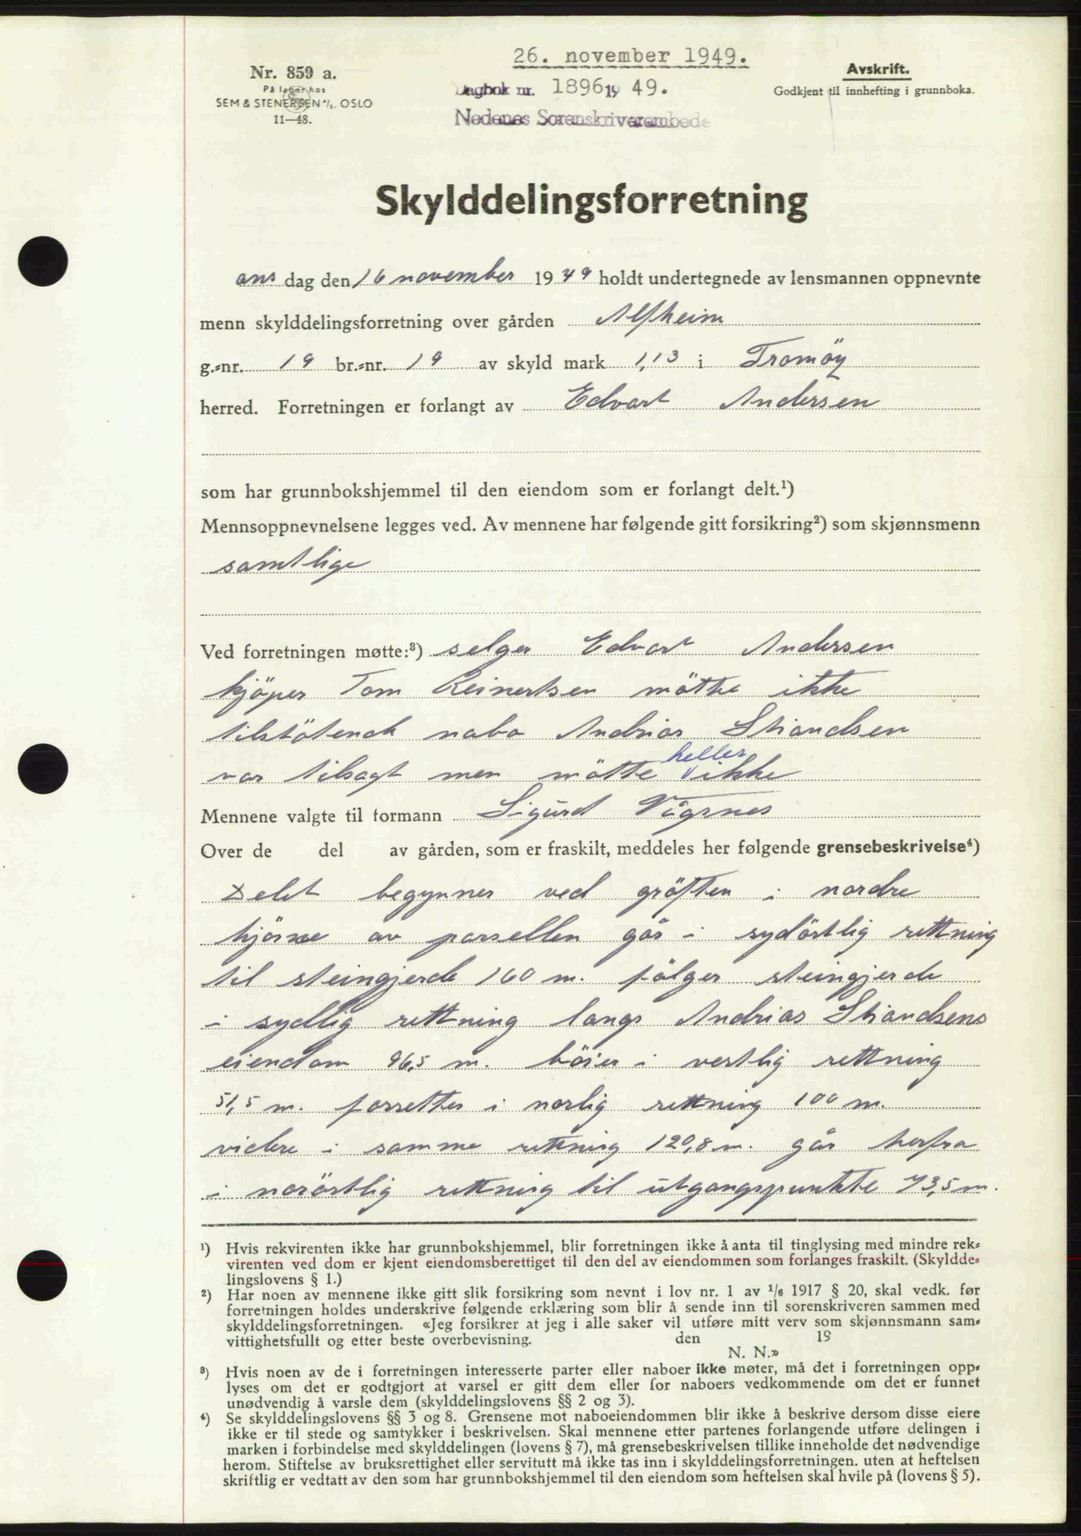 26. november 1949.
Nr. 859 a.
På lager hos
SEM & STENERSEN A/S. OSLO
11—48.
Dagbok nr. 1896 19 49.
Nedenes Sorenskriverembede
Avskrift.
Godkjent til innhefting i grunnboka.
Skylddelingsforretning
ons dag den 16 november 19 49 holdt undertegnede av lensmannen oppnevnte
menn skylddelingsforretning over gården Alfheim
g.-nr. 19 br.-nr. 19 av skyld mark 1,13 i Tromöy
herred. Forretningen er forlangt av Edvart Andersen
som har grunnbokshjemmel til den eiendom som er forlangt delt.¹)
Mennsoppnevnelsene legges ved. Av mennene har følgende gitt forsikring²) som skjønnsmenn
samtlige
Ved forretningen møtte:³) selger Edvart Andersen
kjöper Tom Reinertsen mötte ikke
tilstötende nabo Andrias Stiandsen
var tilsagt men mötte heller ikke
Mennene valgte til formann Sigurd Vågsnes
Over de del av gården, som er fraskilt, meddeles her følgende grensebeskrivelse⁴)
Delet begynner ved gröften i nordre
hjörne av parsellen går i sydöstlig rettning
til steingjerde 160 m. fölger steingjerde
i sydlig rettning langs Andrias Stiandsens
eiendom 96,5 m. böier i vestlig rettning
51,5 m. forsetter i norlig rettning 100 m.
videre i samme rettning 120,8 m. går herfra
i noröstlig rettning til utgangspunkte 73,5 m.
¹) Hvis rekvirenten ikke har grunnbokshjemmel, blir forretningen ikke å anta til tinglysing med mindre rek-
virenten ved dom er kjent eiendomsberettiget til den del av eiendommen som forlanges fraskilt. (Skyldde-
lingslovens § 1.)
²) Har noen av mennene ikke gitt slik forsikring som nevnt i lov nr. 1 av 1/6 1917 § 20, skal vedk. før
forretningen holdes underskrive følgende erklæring som blir å sende inn til sorenskriveren sammen med
skylddelingsforretningen. «Jeg forsikrer at jeg i alle saker vil utføre mitt verv som skjønnsmann sam-
vittighetsfullt og etter beste overbevisning. den 19
N. N.»
³) Hvis noen av de i forretningen interesserte parter eller naboer ikke møter, må det i forretningen opp-
lyses om det er godtgjort at varsel er gitt dem eller for naboers vedkommende om det er funnet
unødvendig å varsle dem (skylddelingslovens §§ 2 og 3).
⁴) Se skylddelingslovens §§ 3 og 8. Grensene mot naboeiendommen blir ikke å beskrive dersom disse eiere
ikke er til stede og samtykker i beskrivelsen. Skal mennene etter partenes forlangende utføre delingen i
marken i forbindelse med skylddelingen (lovens § 7), må grensebeskrivelsen tillike inneholde det nødvendige
herom. Stiftelse av bruksrettighet eller servitutt må ikke tas inn i skylddelingsforretningen. uten at heftelsen
skriftlig er vedtatt av den som har grunnbokshjemmel til den eiendom som heftelsen skal hvile på (lovens § 5).